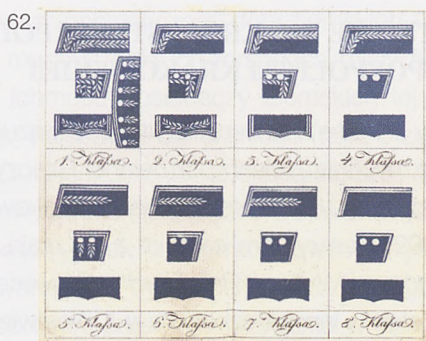 62.
1. Klassa. 2. Klassa. 3. Klassa. 4. Klassa.
5. Klassa. 6. Klassa. 7. Klassa. 8. Klassa.